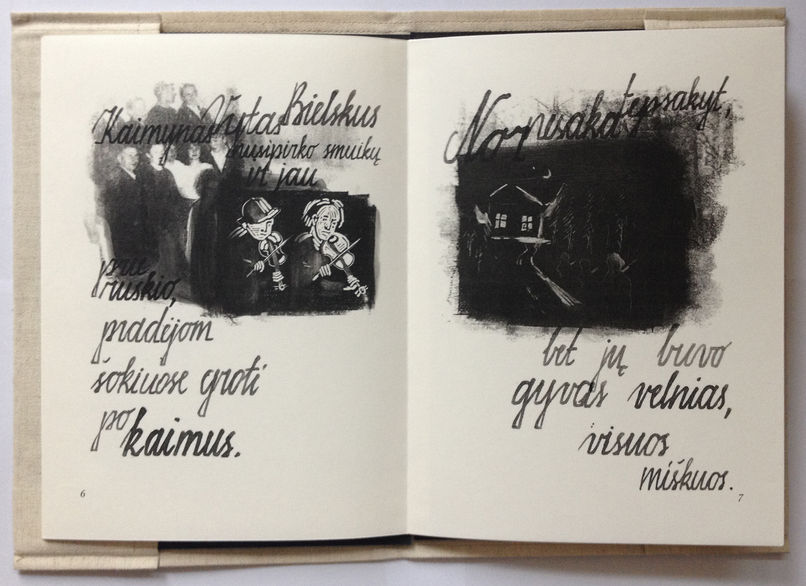 Kaimynas Vytas Bielskus
nusipirko smuiką
ir jau
prie
ruskio,
pradėjom
šokiuose groti
po kaimus.
6
Nor
bet jų buvo
gyvas velnias,
visuos
miškuos.
7